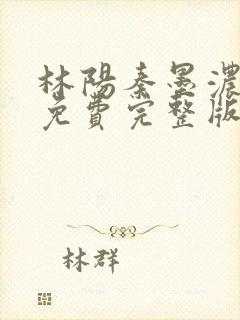 林陽秦墨濃
免費完整版
林群